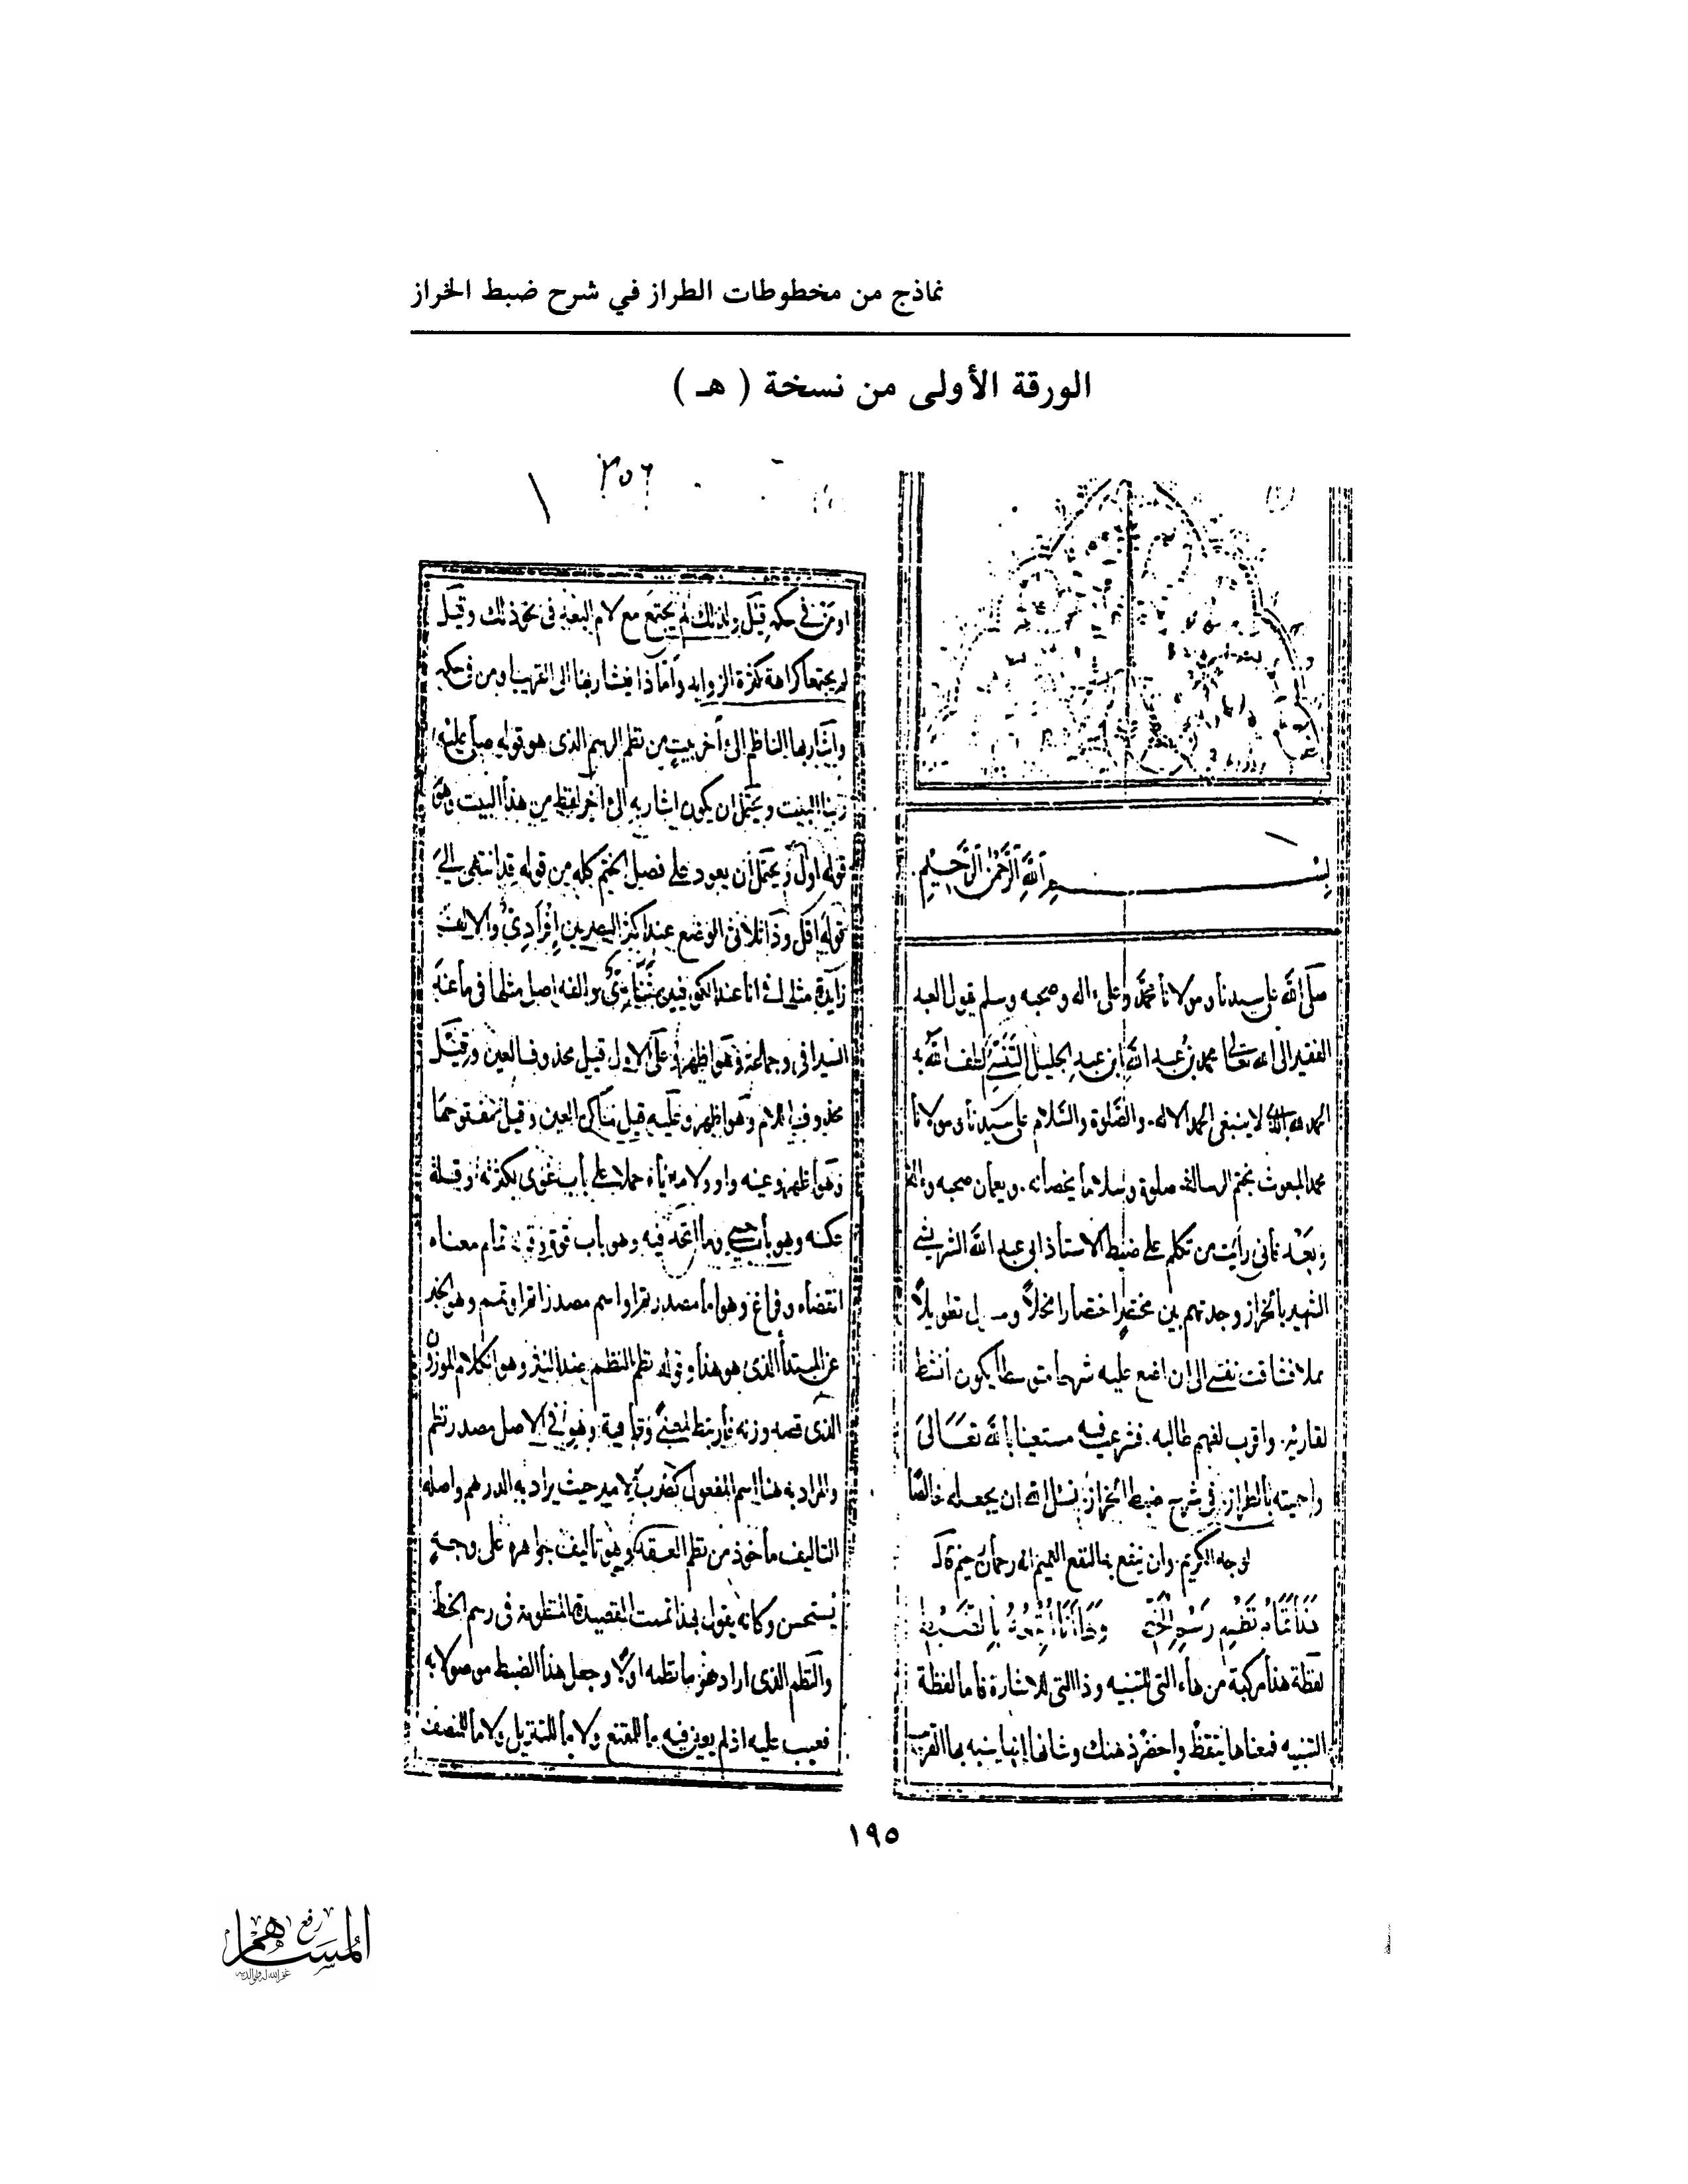 نماذج من مخطوطات الطراز في شرح ضبط الخراز
الورقة الأولى من نسخة ( هـ )
بسم الله الرحمن الرحيم
صلى الله على سيدنا ومولانا محمد وعلى ءاله وصحبه وسلم يقول العبد
الفقير الى الله تعالى محمد بن عبد الله ابن عبد الجليل التنسي لطف الله به
الحمد لله الذي لا ينبغي الحمد الا له. والصلوة والسلام على سيدنا ومولانا
محمد المبعوث بختم الرسالة. صلوة وسلاما يخصانه. ويعمان صحبه وءاله
وبعد فاني رأيت من تكلم على ضبط الاستاذ ابي عبد الله الشريشي
الشهير بالخراز وجدتهم بين مختصر اختصارا مخلاً ومطول تطويلاً
مملا فشاقت نفسي الى ان اضع عليه شرحا متوسطا يكون أنشط
لقاريه. واقرب لفهم طالبه. فشرعت فيه مستعينا بالله تعالى
وسميته بالطراز. في شرح ضبط الخراز. نسئل الله ان يجعله خالصا
لوجهه الكريم. وان ينفع به النفع العميم انه رحمان رحيم قال
هذا تمام نظم رسم الخط وها انا اتبعه بالضبط
لفظة هذا مركبة من هاء التي للتنبيه وذا التي للاشارة فاما لفظة
التنبيه فمعناها تيقظ واحضر ذهنك وشانها انها ينبه بها القريب
٣٥٦
١
او من في حكمه قيل ولذلك لم يجتمع مع لام البعد في نحو ذلك وقيل
لم يجتمعا كراهة كثرة الزوايد وأما ذا فيشار بها الى القريب او من في حكمه
واشار بها الناظم الى ءاخر بيت من نظم الرسم الذي هو قوله صلى عليه
ربنا البيت ويحتمل ان يكون اشار به الى ءاخر لفظ من هذا البيت وهو
قوله اول ويحتمل أن يعود على فصل الختم كله من قوله قد انتهى الى
قوله اقل وذا ثلاثي الوضع عند اكثر البصريين إفرادي والالف
زايدة مثلها في انا عند الكوفيين ثنائي والفه اصل مثلها في ما عند
السيرافي وجماعة وهو اظهر وعلى الاول قيل محذوف العين وقيل
محذوف اللام وهو اظهر وعليه قيل ساكن العين وقيل مفتوحها
وهو أظهر وعينه واو ولامه ياء حملا على باب غوى لكثرته وقلة
عكسه وهو باب حيي وما اتحد فيه وهو باب قوة وقوله تمام معناه
انقضاء وفراغ وهو اما مصدر تم او اسم مصدر اتم او تمم وهو الخبر
عن المبتدأ الذي هو هذا وقوله نظم النظم عند النثر وهو الكلام الموزون
الذي قصد وزنه فارتبط لمعنى وقافية وهو في الاصل مصدر نظم
والمراد به هنا اسم المفعول كضرب الامير حيث يراد به الدرهم واصله
التاليف مأخوذ من نظم العقد وهو تأليف جواهره على وجه
يستحسن وكانه يقول بهذا تمت القصيدة المنظومة في رسم الخط
والنظم الذي اراد هو ما نظمه اولاً وجعل هذا الضبط موصولا به
فعيب عليه اذ لم يعين فيه ما للمقنع ولا ما للتنزيل ولا ما للمنصف
١٩٥
رفع
المساهم
غفر الله له ولوالديه